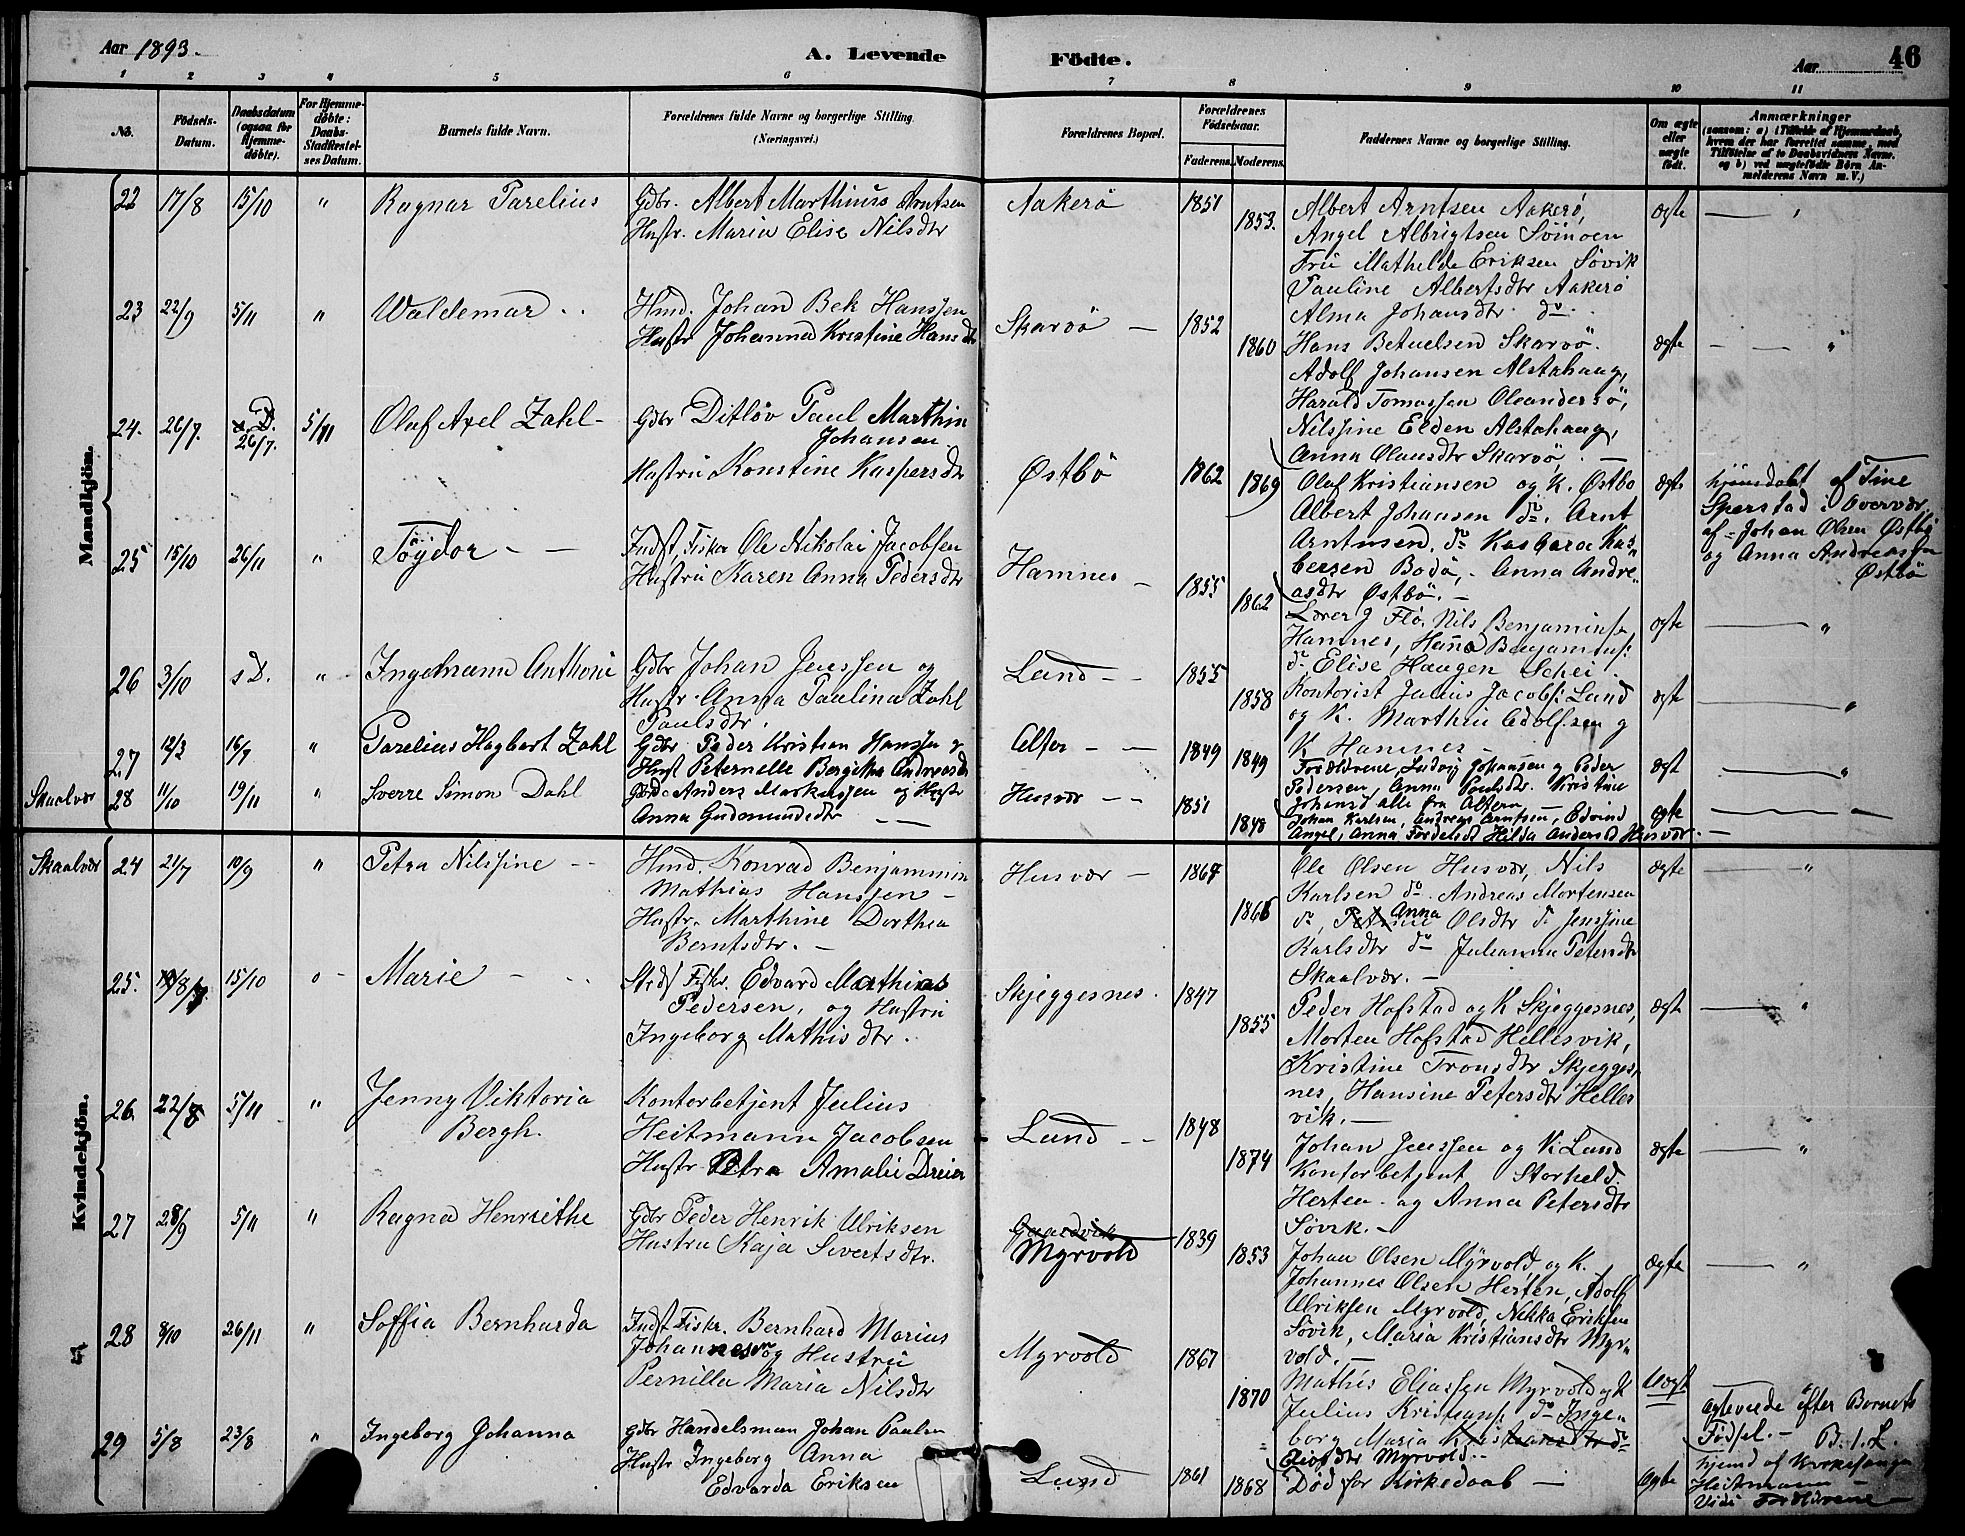 Aar 1893.
A. Levende Födte.
Aar
46
1 2 3 4 5 6 7 8 9 10 11
No. Födsels-Datum. Daabsdatum (ogsaa for Hjemme-döbte). For Hjemme-döbte: Daabs-Stadfæstel-ses Datum. Barnets fulde Navn. Forældrenes fulde Navne og borgerlige Stilling. (Næringsvei.) Forældrenes Bopæl. Forældrenes Födselsaar. Faderens. Moderens. Faddernes Navne og borgerlige Stilling. Om ægte eller uægte födt. Anmærkninger
(saasom: a) i Tilfælde af Hjemmedaab, hvem der har forrettet samme, med Tilföielse af to Daabsvidners Navne, og b) ved uægtefödte Börn An-melderens Navn m. V.)
Mandkjön.
22 17/8 15/10 " Ragnar Parelius
Gdbr. Albert Marthinus Arntsen
Hustr. Maria Elise Nilsdtr
Aakerö 1851 1853.
Albert Arntsen Aakerö,
Angel Albrigtsen Svinöen
Fru Mathilde Eriksen Sövik
Pauline Albertsdtr Aakerö
Alma Johansdtr do.
ægte
23 22/9 5/11 " Waldemar
Hmd. Johan Bek Hanssen
Hustr Johanna Kristine Hansdtr
Skarvö 1852 1860
Hans Betuelsen Skarvö.
Adolf Johansen Alstahaug,
Harald Tomassen Oleandersö,
Nilssine Elden Alstahaug,
Anna Olausdtr Skarvö.
ægte "
24. 26/7. s. D. 26/7. 5/11 Oluf Axel Zahl
Gdbr Ditlöv Paul Marthin
Johansen
Hustru Konstine Kaspersdtr
Østbö 1862 1869
Oluf Kristiansen og K. Østbö
Albert Johansen do. Arnt
Arntnsen, do Kasbara Kas-
bersen Bodö, Anna Andre-
asdtr Østbö.
ægte
hjemdöbt af Tine
Sperstad i Overvær
af Johan Olsen Østbö
og Anna Andreassen
Østbö
25 15/10 26/11 " Töydor
Indst. Fisker Ole Nikolai Jacobsen
Hustru Karen Anna Pedersdtr
Hamnes 1855 1862
Lærer J Flö, Nils Benjamins.
Hamnes, Hanna Benjamins:
do Elise Haugen Schei.
ægte "
26 3/10 s D. " Ingelmann Anthoni
Gdbr Johan Jenssen og
Hustr. Anna Paulina Zahl
Paulsdtr.
Lund 1855 1858
Kontorist Julius Jacobs: Lund
og K. Marthin Adolfsen og
K Hamnes
ægte "
27 12/3 16/9 " Parelius Hagbart Zahl
Gdbr. Peder Kristian Hanssen og
Hust Peternelle Bergithe Andreasdr
Alter 1849 1849
Forældrene, Ludvig Johansen og Peder
Pedersen, Anna Paulsdtr. Kristine
Johansd alle fra Altern
ægt "
Skaalvær 28 11/10 19/11 " Sverre Simon Dahl
Gbd. Anders Markussen og Hustr
Anna Gudmundsdtr
Husvær 1851 1848
Johan Karlsen, Andreas Arntsen, Edvind
Angel, Anna Fredriksd Hilda Andersd Husvær.
ægte
Kvindekjön.
Skaalvær 24 21/7 10/9 " Petra Nilssine
Hmd. Konrad Benjammin
Mathias Hanssen
Hustr. Marthine Dorthea
Berntsdtr.
Husvær 1867 1866
Ole Olsen Husvær, Nils
Karlsen do Andreas Mortensen
do, Anna Olsdtr do Jenssine
Karlsdtr do Julianna Petersdtr
Skaalvær.
ægte "
25. 15/10 Marie
Stedf Fisker. Edvard Mathias
Pedersen, og Hustru
Ingeborg Mathisdtr.
Skjeggesnes. 1847 1855
Peder Hofstad og K Skjeggesnes,
Morten Hofstad Hellesvik,
Kristine Tronsdtr Skjegges-
nes, Hansine Petersdtr Helles
vik.
ægt "
26. 22/8 5/11 " Jenny Viktoria
Bergh.
Kontorbetjent Julius
Heitmann Jacobsen
Hustr. Petra Amalie Dreier
Lund 1848 1874
Johan Jenssen og K. Lund
Kontorbetjent Storheld.
Herten og Anna Petersdtr
Sövik.
ægte "
27 28/9 5/11 " Ragna Henriethe
Gdbr Peder Henrik Ulriksen
Hustru Kaja Sivertsdtr.
Myrvold 1839 1853
Johan Olsen Myrvold, og K.
Johannes Olsen Herten, Adolf
Ulriksen Myrvold, Nikka Eriksen
Sövik, Maria Kristiansdtr Myr-
vold.
ægte "
28 8/10 26/11 " Soffia Bernharda
Indst Fiskr. Bernhard Marius
Johannesen og Hustru
Pernilla Maria Nilsdtr
Myrvold 1867 1870
Mathis Eliassen Myrvold og K
Julius Kristians: do Inge-
borg Maria Kristiansdtr do
Eliasdtr Myrvold.
Uægt
ægteviede efter Barnets
Födsel. B. 1. L.
29 5/8 23/8 " Ingeborg Johanna
Gdbr Handelsman Johan Paulsen
Hustr Ingeborg Anna
Edvarda Eriksen
Lund 1861 1868
Död för Kirkedaab
ægte
hjemd af Kirkesanger
Heitmann
Vidr Forældrene